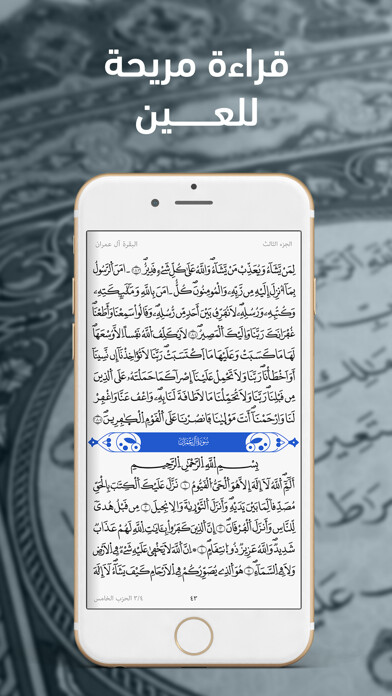 قراءة مريحة
للعـــين
الجزء الثالث البقرة آل عمران
لِمَنْ يَّشَآءُ وَيُعَذِّبْ مَن يَّشَآءُۖ وَاللَّهُ عَلَىٰ كُلِّ شَےْءٍ قَدِيرٌ ۝ ءَامَنَ اَ۬لرَّسُولُ
بِمَآ أُنزِلَ إِلَيْهِ مِن رَّبِّهِۦ وَالْمُومِنُونَۖ كُلٌّ ءَامَنَ بِاللَّهِ وَمَلَٰٓئِكَتِهِۦ
وَكُتُبِهِۦ وَرُسُلِهِۦ لَا نُفَرِّقُ بَيْنَ أَحَدٍ مِّن رُّسُلِهِۦۖ وَقَالُوا سَمِعْنَا وَأَطَعْنَاۖ
غُفْرَانَكَ رَبَّنَا وَإِلَيْكَ اَ۬لْمَصِيرُۖ ۝ لَا يُكَلِّفُ اُ۬للَّهُ نَفْساً اِلَّا وُسْعَهَاۖ
لَهَا مَا كَسَبَتْ وَعَلَيْهَا مَا اَ۪كْتَسَبَتْۖ رَبَّنَا لَا تُوَاخِذْنَآ إِن نَّسِينَآ
أَوَ اَخْطَأْنَاۖ رَبَّنَا وَلَا تَحْمِلْ عَلَيْنَآ إِصْراً كَمَا حَمَلْتَهُۥ عَلَى اَ۬لَّذِينَ
مِن قَبْلِنَاۖ رَبَّنَا وَلَا تُحَمِّلْنَا مَا لَا طَاقَةَ لَنَا بِهِۦۖ وَاعْفُ عَنَّا وَاغْفِرْ
لَنَا وَارْحَمْنَآۖ أَنتَ مَوْلَىٰنَا فَانصُرْنَا عَلَى اَ۬لْقَوْمِ اِ۬لْكَٰفِرِينَۖ ۝
سُورَةُ آلِ عِمْرَانَ
بِسْمِ اللَّهِ الرَّحْمَٰنِ الرَّحِيمِ
أَلَٓمِّٓ اَ۬للَّهُ لَآ إِلَٰهَ إِلَّا هُوَ اَ۬لْحَىُّ اُ۬لْقَيُّومُۖ ۝ نَزَّلَ عَلَيْكَ اَ۬لْكِتَٰبَ بِالْحَقِّ
مُصَدِّقاً لِّمَا بَيْنَ يَدَيْهِۖ وَأَنزَلَ اَ۬لتَّوْرَىٰةَ وَالْإِنجِيلَ ۝ مِن قَبْلُ هُدىً
لِّلنَّاسِ وَأَنزَلَ اَ۬لْفُرْقَانَۖ ۝ إِنَّ اَ۬لَّذِينَ كَفَرُوا بِـَٔايَٰتِ اِ۬للَّهِ لَهُمْ عَذَابٌ
شَدِيدٌۖ وَاللَّهُ عَزِيزٌ ذُو اُ۪نتِقَامٍۖ ۝ اِنَّ اَ۬للَّهَ لَا يَخْفَىٰ عَلَيْهِ شَےْءٌ فِے اِ۬لْأَرْضِ
وَلَا فِے اِ۬لسَّمَآءِۖ ۝ هُوَ اَ۬لَّذِے يُصَوِّرُكُمْ فِے اِ۬لْأَرْحَامِ كَيْفَ يَشَآءُۖ لَآ إِلَٰهَ
٣/٤ الحزب الخامس ٤٣